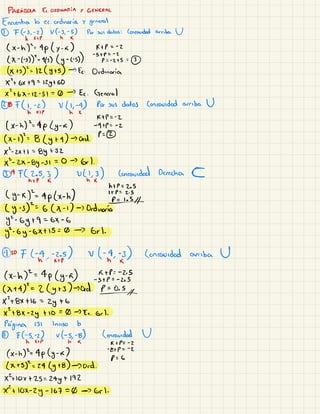 PARÁBOLA EC. ORDINARIA Y GENERAL
Encuentra la ec. ordinaria y general
① F(-3,-2) V(-3,-5) Por sus datos: Concavidad arriba U
h k+p h k
(x-h)²=4p(y-k) k+p=-2
(x-(-3))²=4(3)(y-(-5)) -5+p=-2
p=-2+5=③
(x+3)²=12(y+5)→Ec Ordinaria
x²+6x+9=12y+60
x²+6x-12y-51=0→Ec. General
F(1,-2) V(1,-4) Por sus datos Concavidad arriba U
h k+p h k
k+p=-2
(x-h)²=4p(y-k) -4+p=-2
(x-1)²=8(y+4)→Ord p=②
x²-2x+1=8y+32
x²-2x-8y-31=0→Grl.
F(2.5,3) V(1,3) Concavidad Derecha C
h+p k h k
h+p=2.5
(y-k)²=4p(x-h) 1+p=2.5
(y-3)²=6(x-1)→Ordinaria p=1.5//
y²-6y+9=6x-6
y²-6y-6x+15=0→Grl.
F(-4,-2.5) V(-4,-3) Concavidad arriba U
h k+p h k
(x-h)²=4p(y-k) k+p=-2.5
-3+p=-2.5
(x+4)²=2(y+3)→Ord p=0.5//
x²+8x+16=2y+6
x²+8x-2y+10=0→Ec. Grl.
Página 131 Inciso b
F(-5,-2) V(-5,-8) Concavidad U
h k+p h k
k+p=-2
(x-h)²=4p(y-k) -8+p=-2
p=6
(x+5)²=24(y+8)→Ord.
x²+10x+25=24y+192
x²+10x-24y-167=0→Grl.